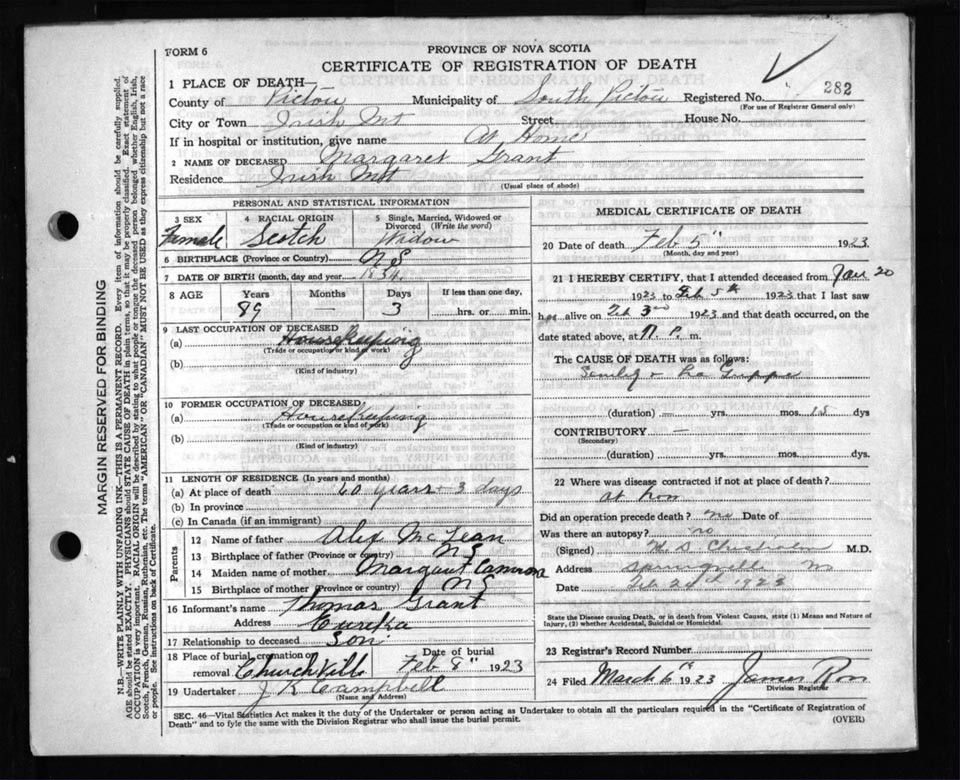 FORM 6
PROVINCE OF NOVA SCOTIA
CERTIFICATE OF REGISTRATION OF DEATH
282
1 PLACE OF DEATH—
County of Pictou Municipality of South Pictou Registered No.
(For use of Registrar General only)
City or Town Irish Mt Street House No.
If in hospital or institution, give name At Home
2 NAME OF DECEASED Margaret Grant
Residence Irish Mt
(Usual place of abode)
PERSONAL AND STATISTICAL INFORMATION
3 SEX Female
4 RACIAL ORIGIN Scotch
5 Single, Married, Widowed or Divorced (Write the word) Widow
6 BIRTHPLACE (Province or Country) N.S
7 DATE OF BIRTH (month, day and year) 1834
8 AGE Years 89 Months — Days 3 If less than one day, hrs. or min.
9 LAST OCCUPATION OF DECEASED
(a) Housekeeping
(Trade or occupation or kind of work)
(b)
(Kind of industry)
10 FORMER OCCUPATION OF DECEASED
(a) Housekeeping
(Trade or occupation or kind of work)
(b)
(Kind of industry)
11 LENGTH OF RESIDENCE (In years and months)
(a) At place of death 60 years 3 days
(b) In province
(c) In Canada (if an immigrant)
Parents
12 Name of father Alex McLean
13 Birthplace of father (Province or country) N S
14 Maiden name of mother Margaret Camrona
15 Birthplace of mother (Province or country) N S
16 Informant's name Thomas Grant
Address Eureka
17 Relationship to deceased Son
18 Place of burial, cremation or removal Churchville Date of burial Feb 8" 1923
19 Undertaker J R Campbell
(Name and Address)
MEDICAL CERTIFICATE OF DEATH
20 Date of death Feb 5" 1923
(Month, day and year)
21 I HEREBY CERTIFY, that I attended deceased from Jan 20
1923 to Feb 5th 1923 that I last saw
her alive on Feb 3rd 1923 and that death occurred, on
date stated above, at 11 P. m.
The CAUSE OF DEATH was as follows:
La Grippe
(duration) — yrs. mos. 15 dys
CONTRIBUTORY —
(Secondary)
(duration) yrs. mos. dys.
22 Where was disease contracted if not at place of death?
at hom
Did an operation precede death? no Date of
Was there an autopsy? no
(Signed) Chisholm M.D.
Address Springville NS
Date Feb 1923
State the Disease causing Death, or in death from Violent Causes, state (1) Means and Nature of Injury, (2) whether Accidental, Suicidal or Homicidal.
23 Registrar's Record Number
24 Filed March 6 1923 James Ross
Division Registrar
SEC. 46—Vital Statistics Act makes it the duty of the Undertaker or person acting as Undertaker to obtain all the particulars required in the "Certificate of Registration of
Death" and to fyle the same with the Division Registrar who shall issue the burial permit.
(OVER)
MARGIN RESERVED FOR BINDING
N.B.—WRITE PLAINLY WITH UNFADING INK—THIS IS A PERMANENT RECORD. Every item of information should be carefully supplied.
AGE should be stated EXACTLY. PHYSICIANS should STATE CAUSE OF DEATH in plain terms, so that it may be properly classified. Exact statement of
OCCUPATION is very important. RACIAL ORIGIN will be described by stating to what people or tongue the deceased person belonged whether English, Irish,
Scotch, French, German, Russian, Ruthenian, etc. The terms "AMERICAN" or "CANADIAN" MUST NOT BE USED as they express citizenship but not a race
or people. See instructions on back of Certificate.